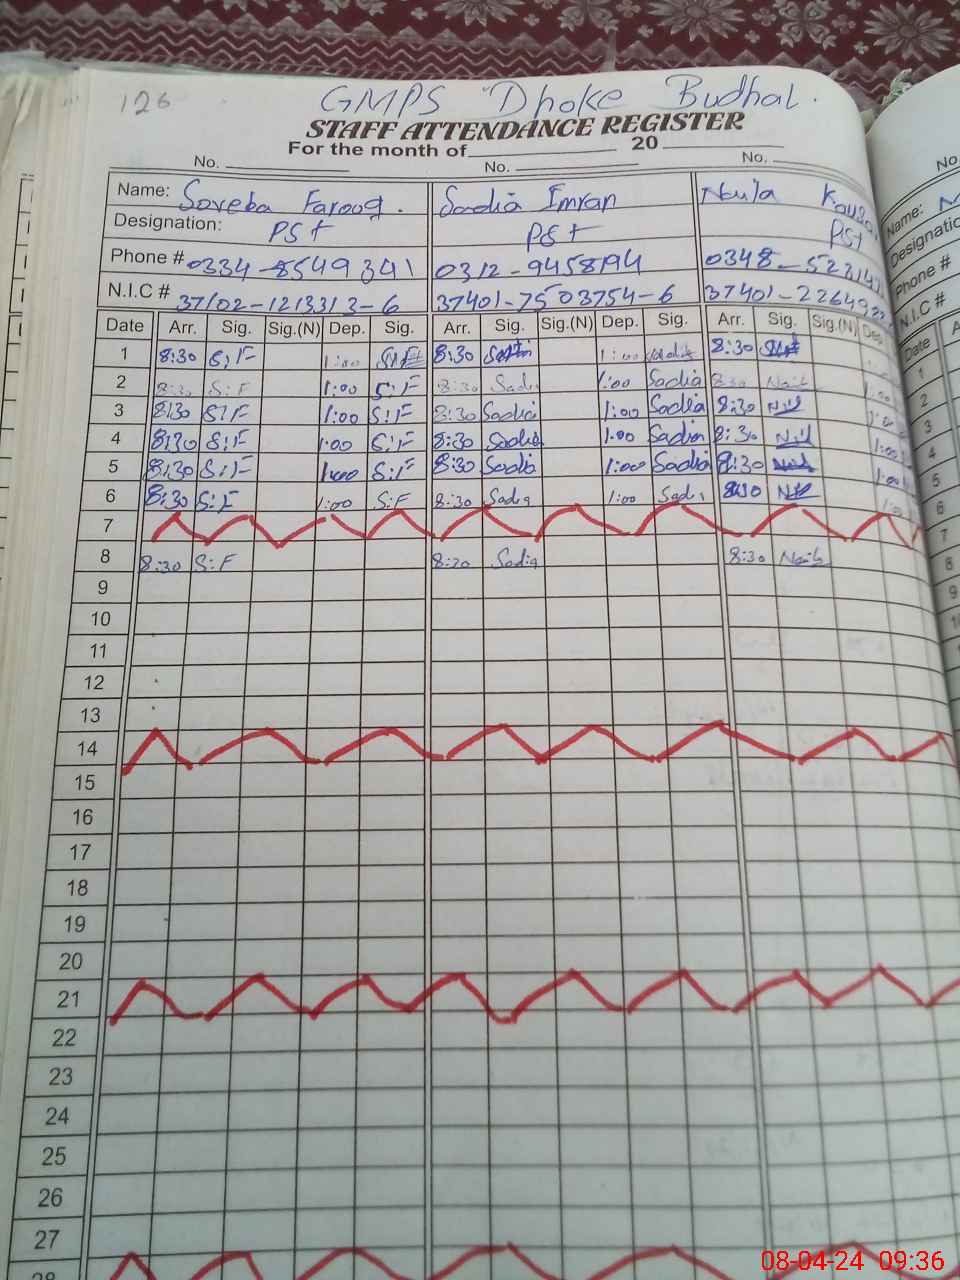 126 GMPS Dhoke Budhal.
STAFF ATTENDANCE REGISTER
For the month of 20
No. No. No. No
Name: Soveba Farooq. Sadia Imran Kouso Name:
Designation: PST PST PST Designatio
Phone # 0334-8549341 0312-9458194 0348-523 Phone #
N.I.C # 37102-1213313-6 37401-7503754-6 37401-22649 N.I.C #
Date Arr. Sig. Sig.(N) Dep. Sig. Arr. Sig. Sig.(N) Dep. Sig. Arr. Sig. Sig.(N) De Date A
1 8:30 S:F 1:00 S:F 8:30 1:00 Sadia 8:30 1
2 8:30 S:F 1:00 S:F 8:30 Sadia 1:00 Sadia 8:30 1:00 2
3 8:30 S:F 1:00 S:F 8:30 Sadia 1:00 Sadia 8:30 1:00 3
4 8:30 S:F 1:00 S:F 8:30 Sadia 1:00 Sadia 8:30 1:00 4
5 8:30 S:F 1:00 S:F 8:30 Sadia 1:00 Sadia 8:30 1:00 5
6 8:30 S:F 1:00 S:F 8:30 Sadia 1:00 Sadia 8:30 1:00 6
7 7
8 8:30 S:F 8:30 Sadia 8:30 8
9 9
10
11
12
13
14
15
16
17
18
19
20
21
22
23
24
25
26
27
28
08-04-24 09:36